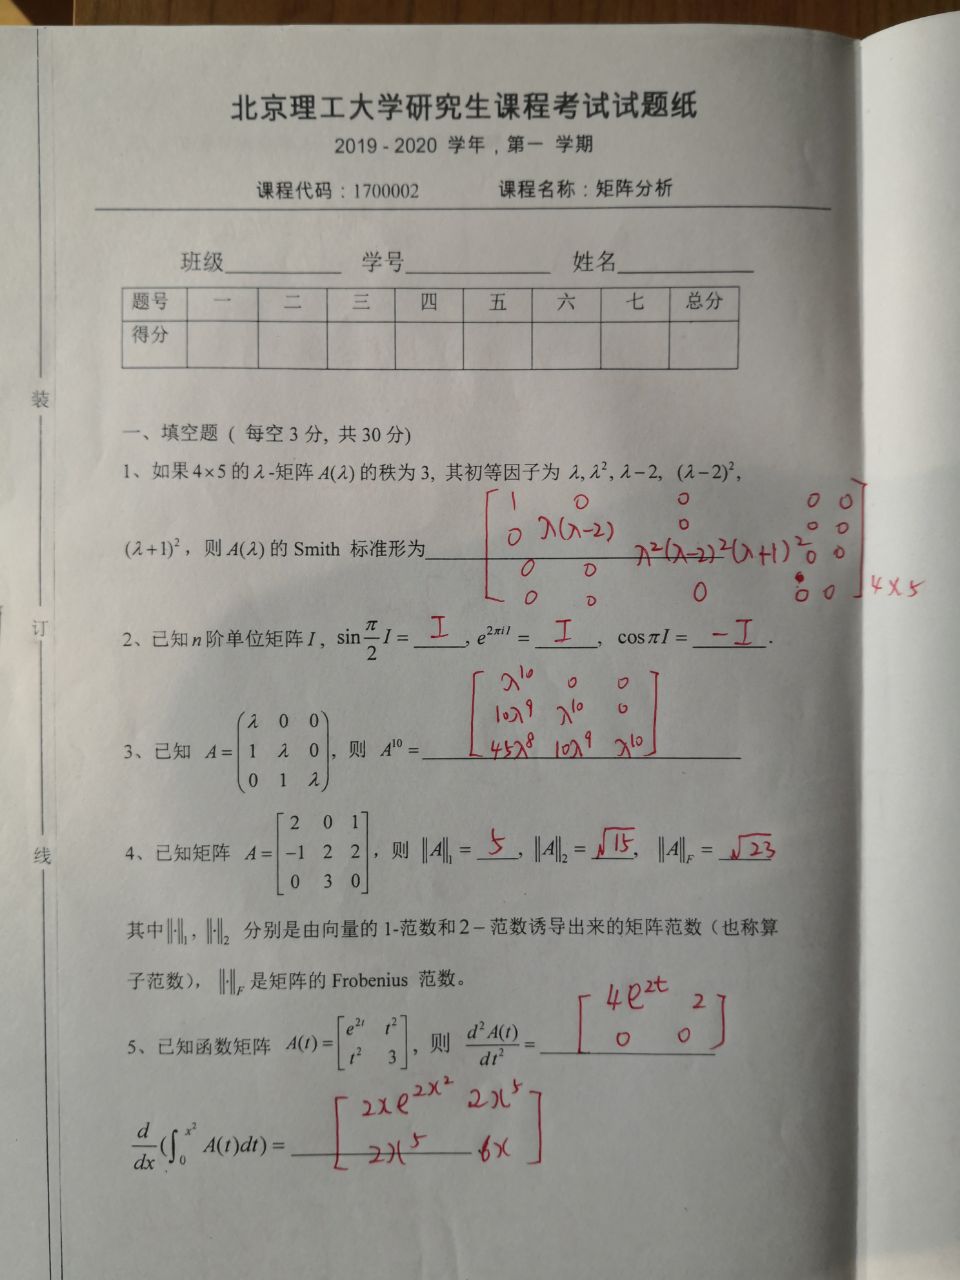 北京理工大学研究生课程考试试题纸
2019 - 2020 学年，第一 学期
课程代码：1700002 课程名称：矩阵分析
班级______ 学号______ 姓名______
题号 一 二 三 四 五 六 七 总分
得分
装
订
线
一、填空题 ( 每空 3 分, 共 30 分)
1、如果 4×5 的 λ-矩阵 A(λ) 的秩为 3, 其初等因子为 λ, λ², λ−2, (λ−2)²,
(λ+1)², 则 A(λ) 的 Smith 标准形为______
1 0 0 0 0
0 λ(λ-2) 0 0 0
0 0 λ²(λ-2)²(λ+1)² 0 0
0 0 0 0 0
4×5
2、已知 n 阶单位矩阵 I, sin π/2 I = I, e^{2πiI} = I, cos πI = -I.
3、已知 A = (λ 0 0; 1 λ 0; 0 1 λ), 则 A¹⁰ =
λ¹⁰ 0 0
10λ⁹ λ¹⁰ 0
45λ⁸ 10λ⁹ λ¹⁰
4、已知矩阵 A = [2 0 1; −1 2 2; 0 3 0], 则 ‖A‖₁ = 5, ‖A‖₂ = √15, ‖A‖_F = √23
其中‖·‖₁, ‖·‖₂ 分别是由向量的 1-范数和 2−范数诱导出来的矩阵范数（也称算
子范数）, ‖·‖_F 是矩阵的 Frobenius 范数。
5、已知函数矩阵 A(t) = [e^{2t} t²; t² 3], 则 d²A(t)/dt² =
4e^{2t} 2
0 0
d/dx (∫₀^{x²} A(t)dt) =
2xe^{2x²} 2x⁵
2x⁵ 6x